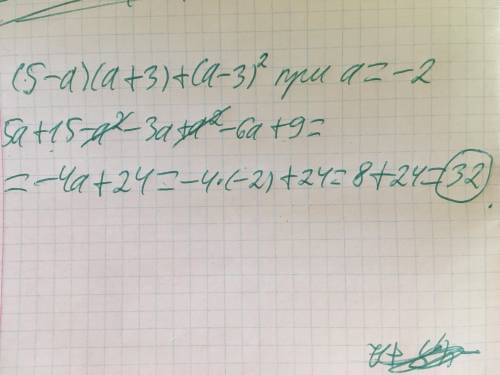 (5-a)(a+3)+(a-3)² при a=-2
5a+15-a²-3a+a²-6a+9=
=-4a+24=-4·(-2)+24=8+24=32